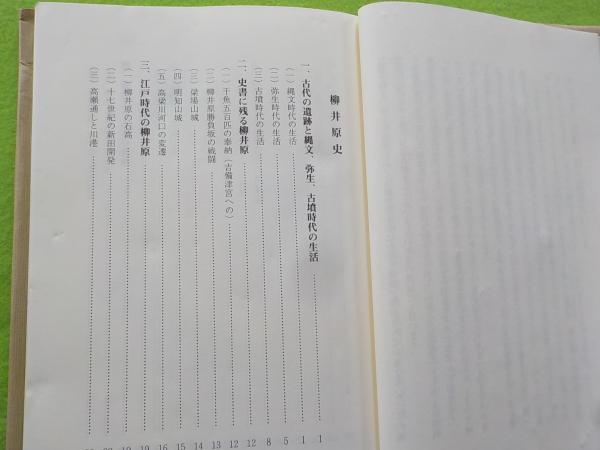 柳井原史
一、古代の遺跡と縄文、弥生、古墳時代の生活……1
(一)縄文時代の生活……1
(二)弥生時代の生活……5
(三)古墳時代の生活……8
二、史書に残る柳井原……12
(一)干魚五百匹の奉納(吉備津宮への)……12
(二)柳井原勝負坂の戦闘……13
(三)梁場山城……14
(四)明知山城……15
(五)高梁川河口の変遷……16
三、江戸時代の柳井原……19
(一)柳井原の石高……19
(二)十七世紀の新田開発
(三)高瀬通しと川港